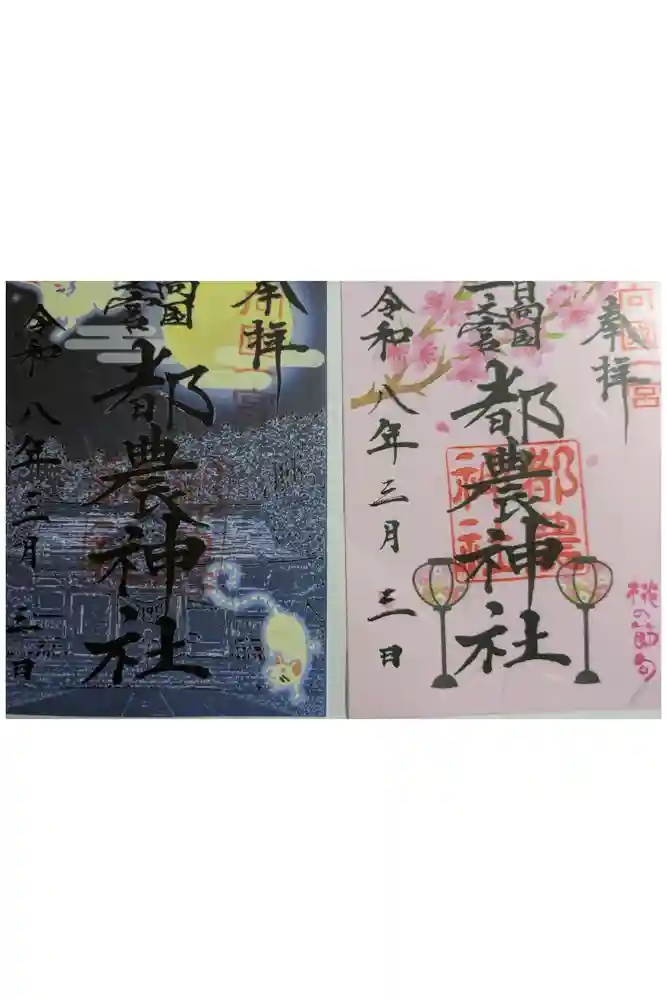 奉拝
向国
一宮
都農神社
令和八年三月三日
向国一宮
奉拝
向国一宮
日向国
一之宮
都農神社
都農
神社
令和八年三月三日
桃の節句